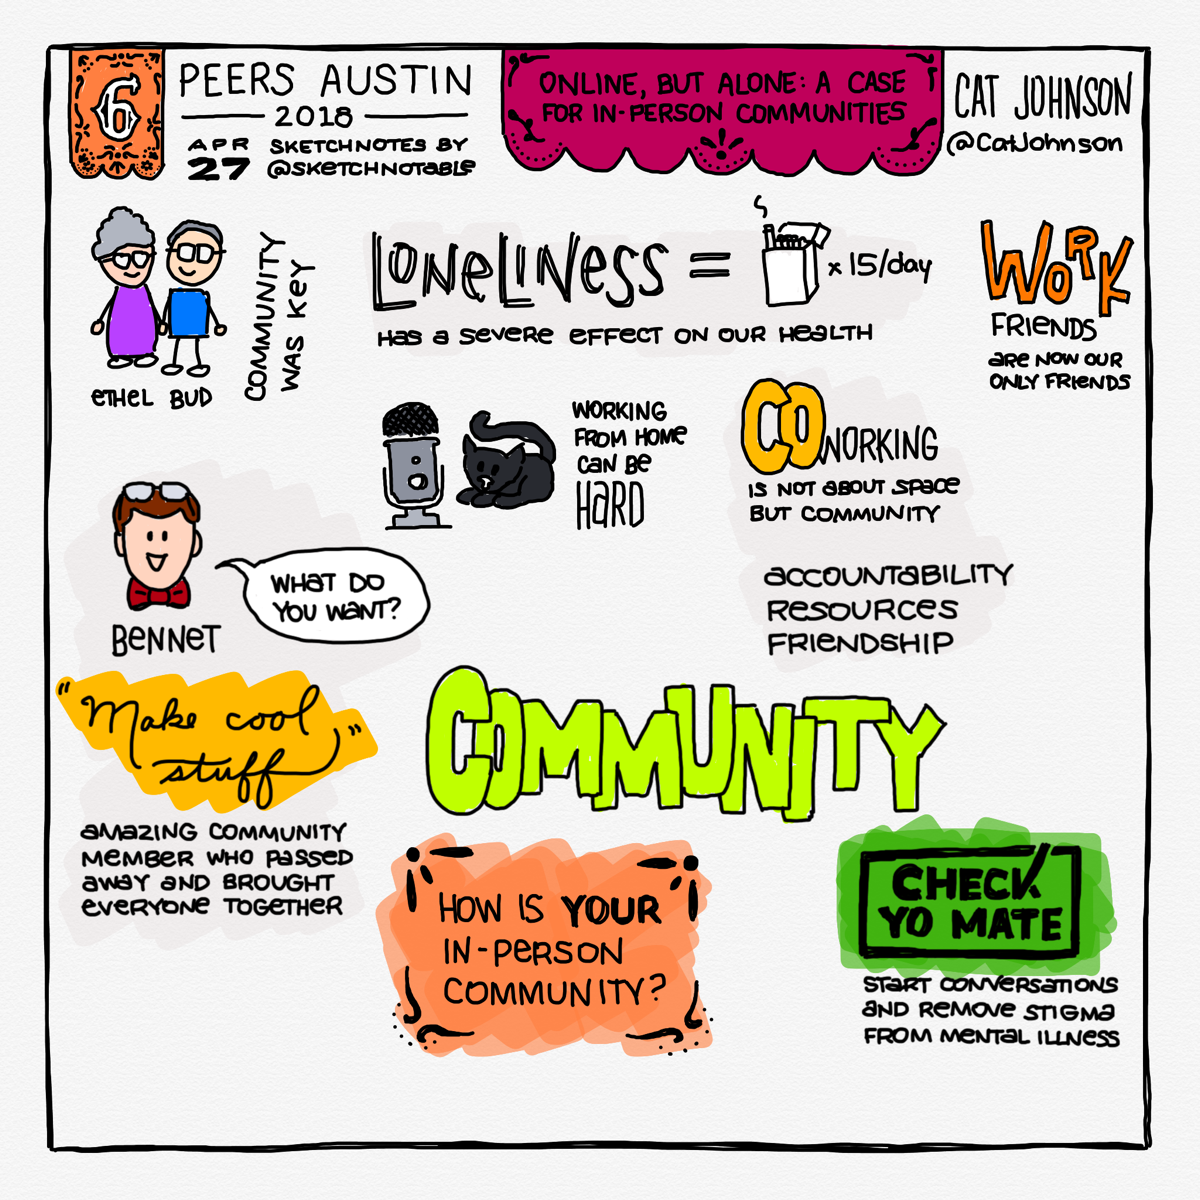 6
PEERS AUSTIN
2018
APR
27
SKETCHNOTES BY
@SKETCHNOTABLE
ONLINE, BUT ALONE: A CASE
FOR IN-PERSON COMMUNITIES
CAT JOHNSON
@CatJohnson
ETHEL BUD
COMMUNITY
WAS KEY
LONELINESS = x 15/day
HAS A SEVERE EFFECT ON OUR HEALTH
WORK
FRIENDS
ARE NOW OUR
ONLY FRIENDS
WORKING
FROM HOME
CAN BE
HARD
COWORKING
IS NOT ABOUT SPACE
BUT COMMUNITY
ACCOUNTABILITY
RESOURCES
FRIENDSHIP
WHAT DO
YOU WANT?
BENNET
"Make cool
stuff"
AMAZING COMMUNITY
MEMBER WHO PASSED
AWAY AND BROUGHT
EVERYONE TOGETHER
COMMUNITY
HOW IS YOUR
IN-PERSON
COMMUNITY?
CHECK
YO MATE
START CONVERSATIONS
AND REMOVE STIGMA
FROM MENTAL ILLNESS